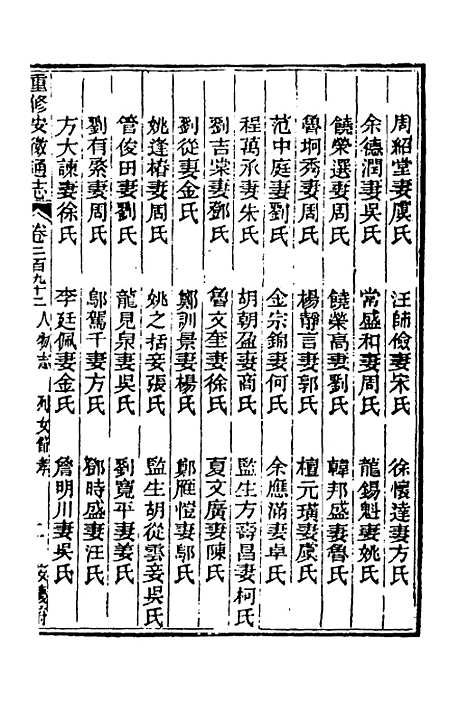 周紹堂妻虞氏　汪師儉妻宋氏　徐懷達妻方氏
余德潤妻吳氏　常盛和妻周氏　龍錫魁妻姚氏
饒榮選妻周氏　饒榮高妻劉氏　韓邦盛妻魯氏
魯坰秀妻周氏　楊靜言妻郭氏　檀元璜妻虞氏
范中庭妻劉氏　金宗錦妻何氏　余應滿妻卓氏
程萬承妻朱氏　胡朝盈妻商氏　監生方壽昌妻柯氏
劉吉棠妻鄧氏　魯文奎妻徐氏　夏文廣妻陳氏
劉從妻金氏　鄭訓景妻楊氏　鄭雁愷妻鄔氏
姚逢椿妻周氏　姚之括妾張氏　監生胡從雲妾吳氏
管俊田妻劉氏　龍見泉妻吳氏　劉寬平妻姜氏
劉有泰妻周氏　鄔駕千妻方氏　鄧時盛妻汪氏
方大諫妻徐氏　李廷佩妻金氏　詹明川妻吳氏
重修安徽通志　卷二百九十二　人物志　列女節孝